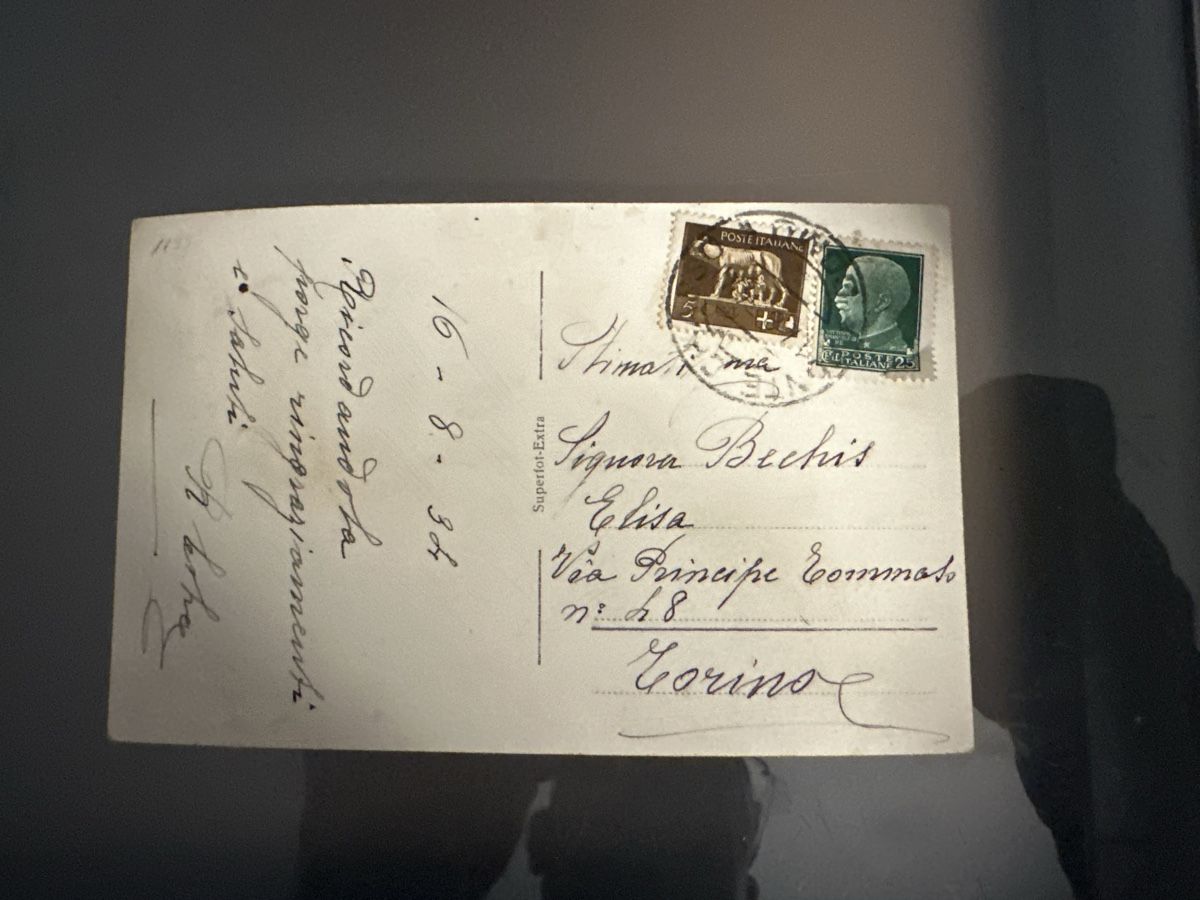 16 - 8 - 34
Ricordandola
porge ringraziamenti
e saluti
Superfot-Extra
POSTE ITALIANE
5
POSTE
ITALIANE 25
Signora Bechis
Elisa
Via Principe Tommaso
n: 48
Torino